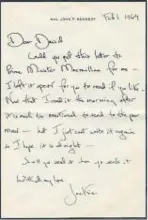 MRS. JOHN F. KENNEDY
Feb 1 1964
Dear David
Could you get this letter to
Prime Minister Macmillan for me —
I left it open for you to read if you like.
Now that I read it the morning after
it is much too emotional to send to the poor
man — but I just can't write it again
so I hope it is all right —
you read it then you seal it
With all my love
Jackie